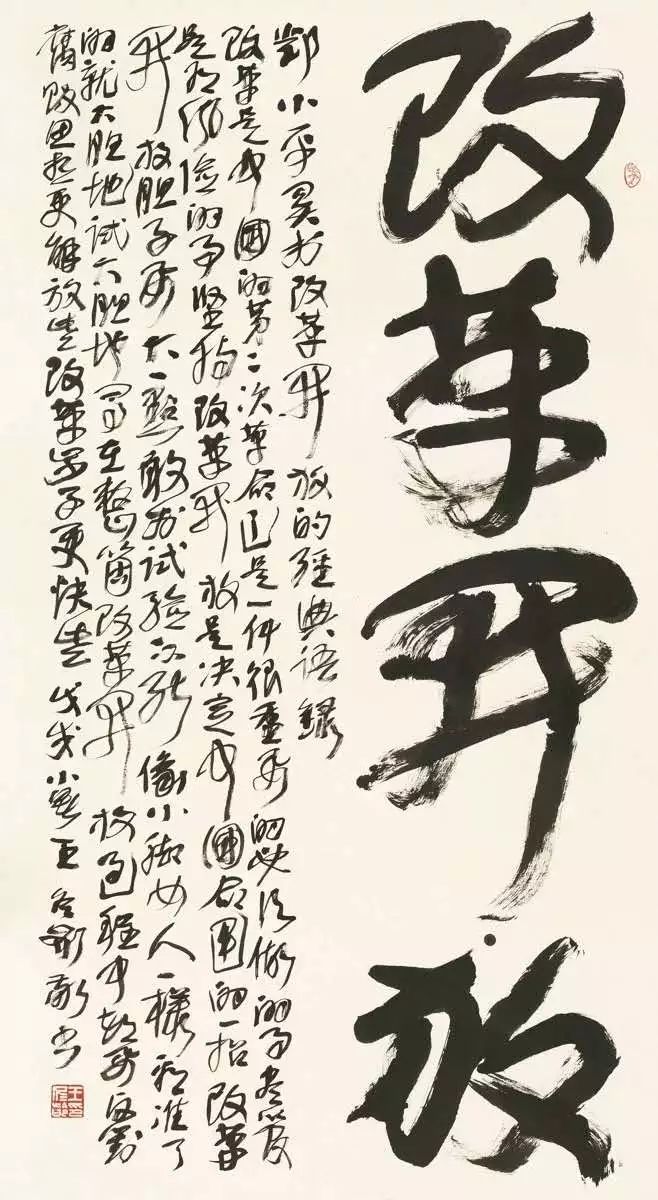 改革开放
邓小平关于改革开放的经典语录
改革是中國的第二次革命这是一件很重要的必须做的事尽管
是有风险的事坚持改革开放是决定中國命運的一招改革
开放胆子要大一点敢于试验不能像小脚女人一样看准了
的就大胆地试大胆地闯在整箇改革开放过程中都要反对
腐败思想更解放些改革步子更快些戊戌小寒王书